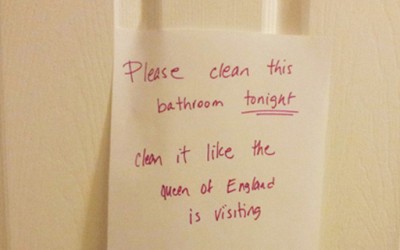 Please clean this
bathroom tonight
clean it like the
queen of England
is visiting